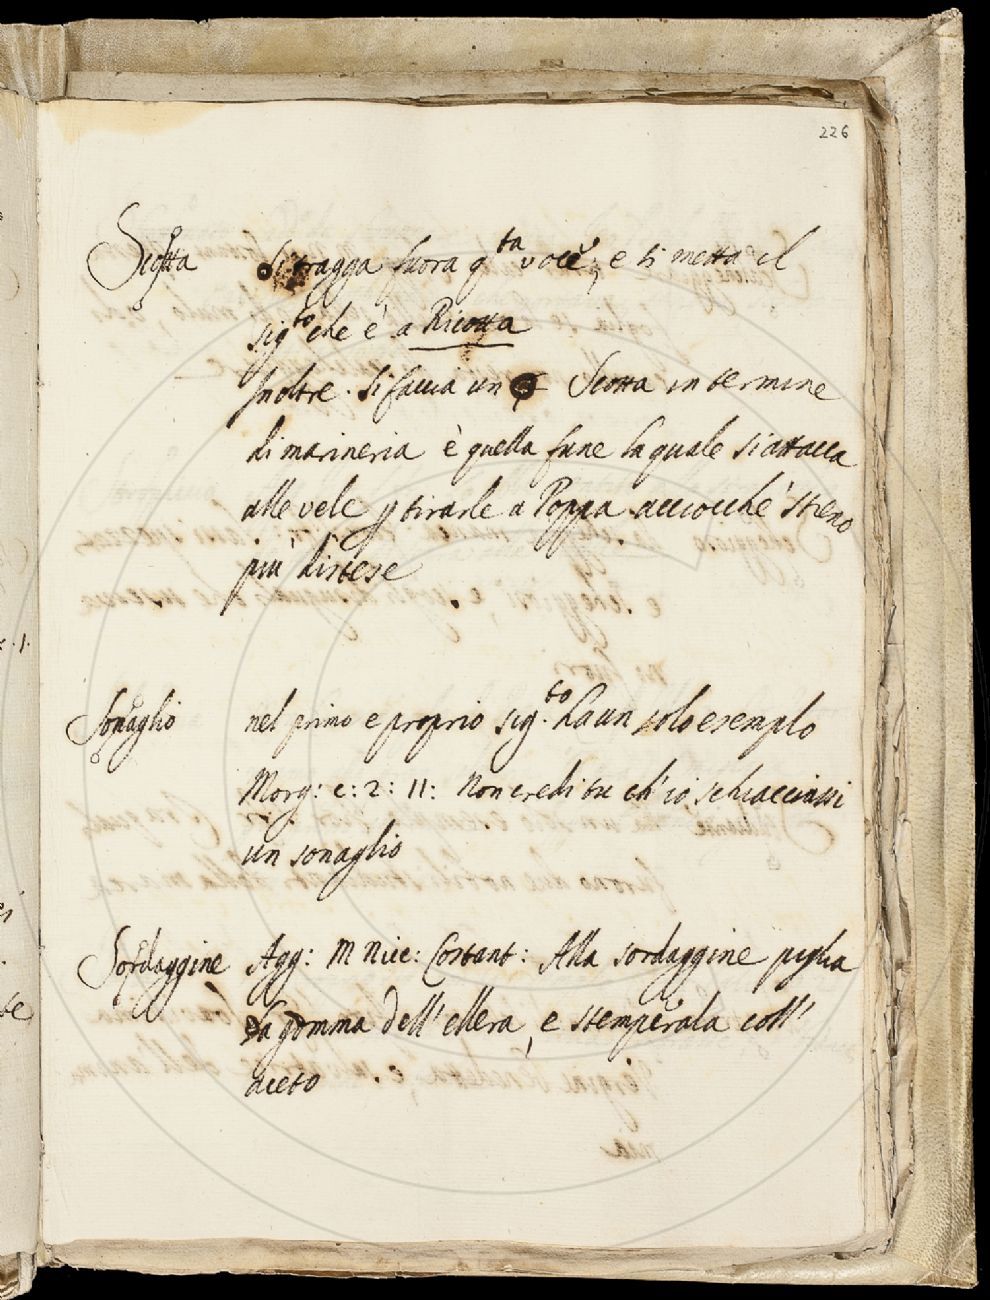 226
Scotta si tragga fuora q.ta voce, e si metta il
sig.to che è a Ricotta
Inoltre si faccia un § Scotta in termine
di marineria è quella fune la quale si attacca
alle vele p tirarle a Poppa acciocchè stieno
più distese
Sonaglio nel primo e proprio sig.to ha un solo esemplo
Morg: c: 2: 11: Non credi tu ch'io schiacciassi
un sonaglio
Sordaggine Agg: M Nicc: Costant: Alla sordaggine piglia
la gomma dell'ellera, e stemperala coll'
aceto